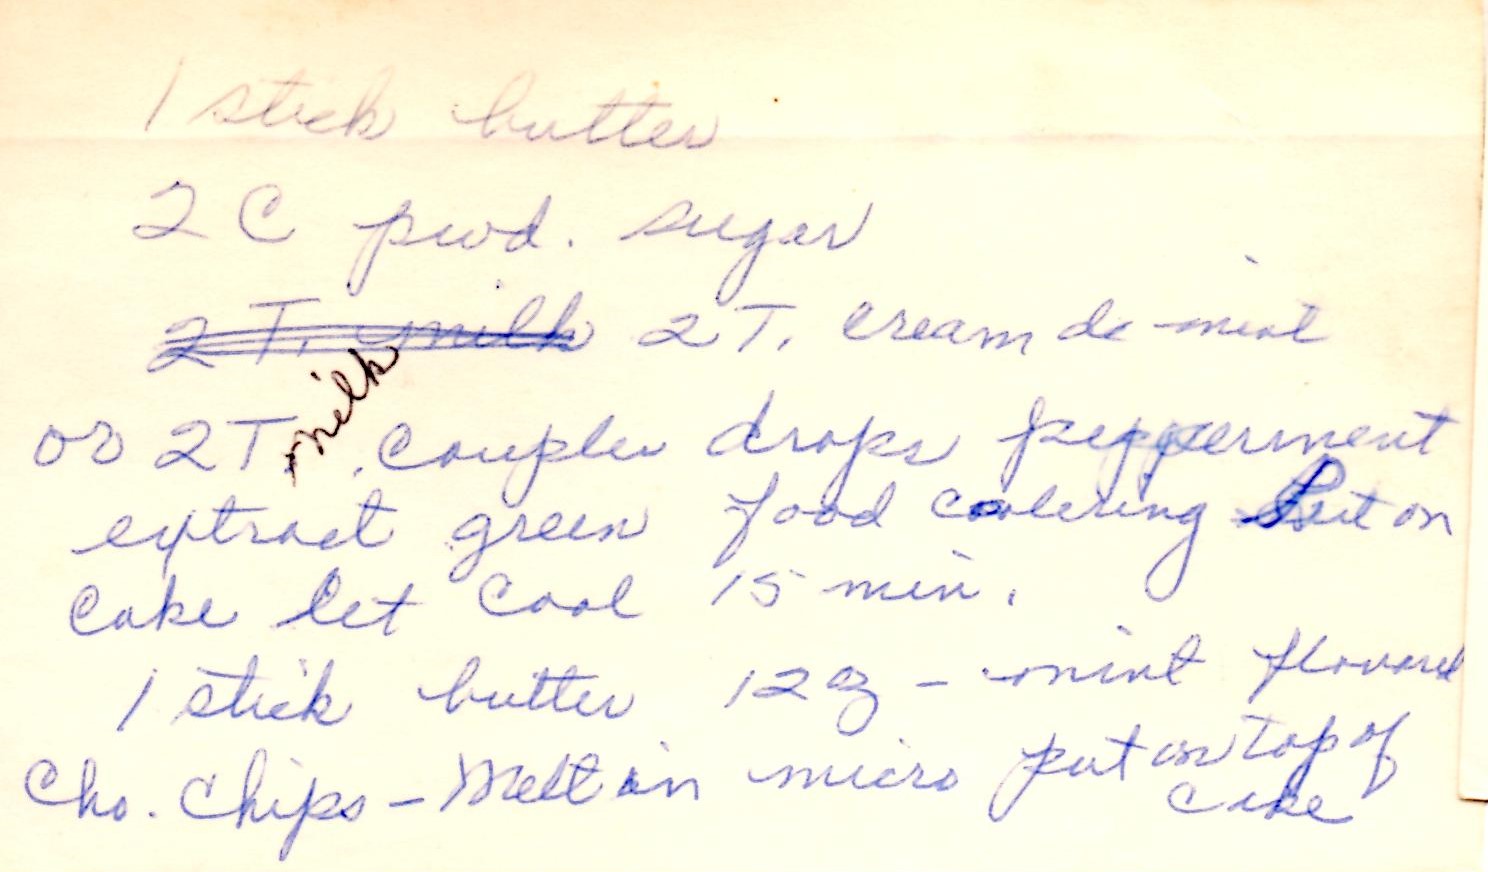 1 stick butter
2 C pwd. sugar
2 T. milk 2 T. cream de mint
or 2 T. milk, couple drops pepperment
extract green food coolering Put on
cake let cool 15 min.
1 stick butter 12 oz - mint flavored
Cho. Chips - Melt in micro put on top of
cake